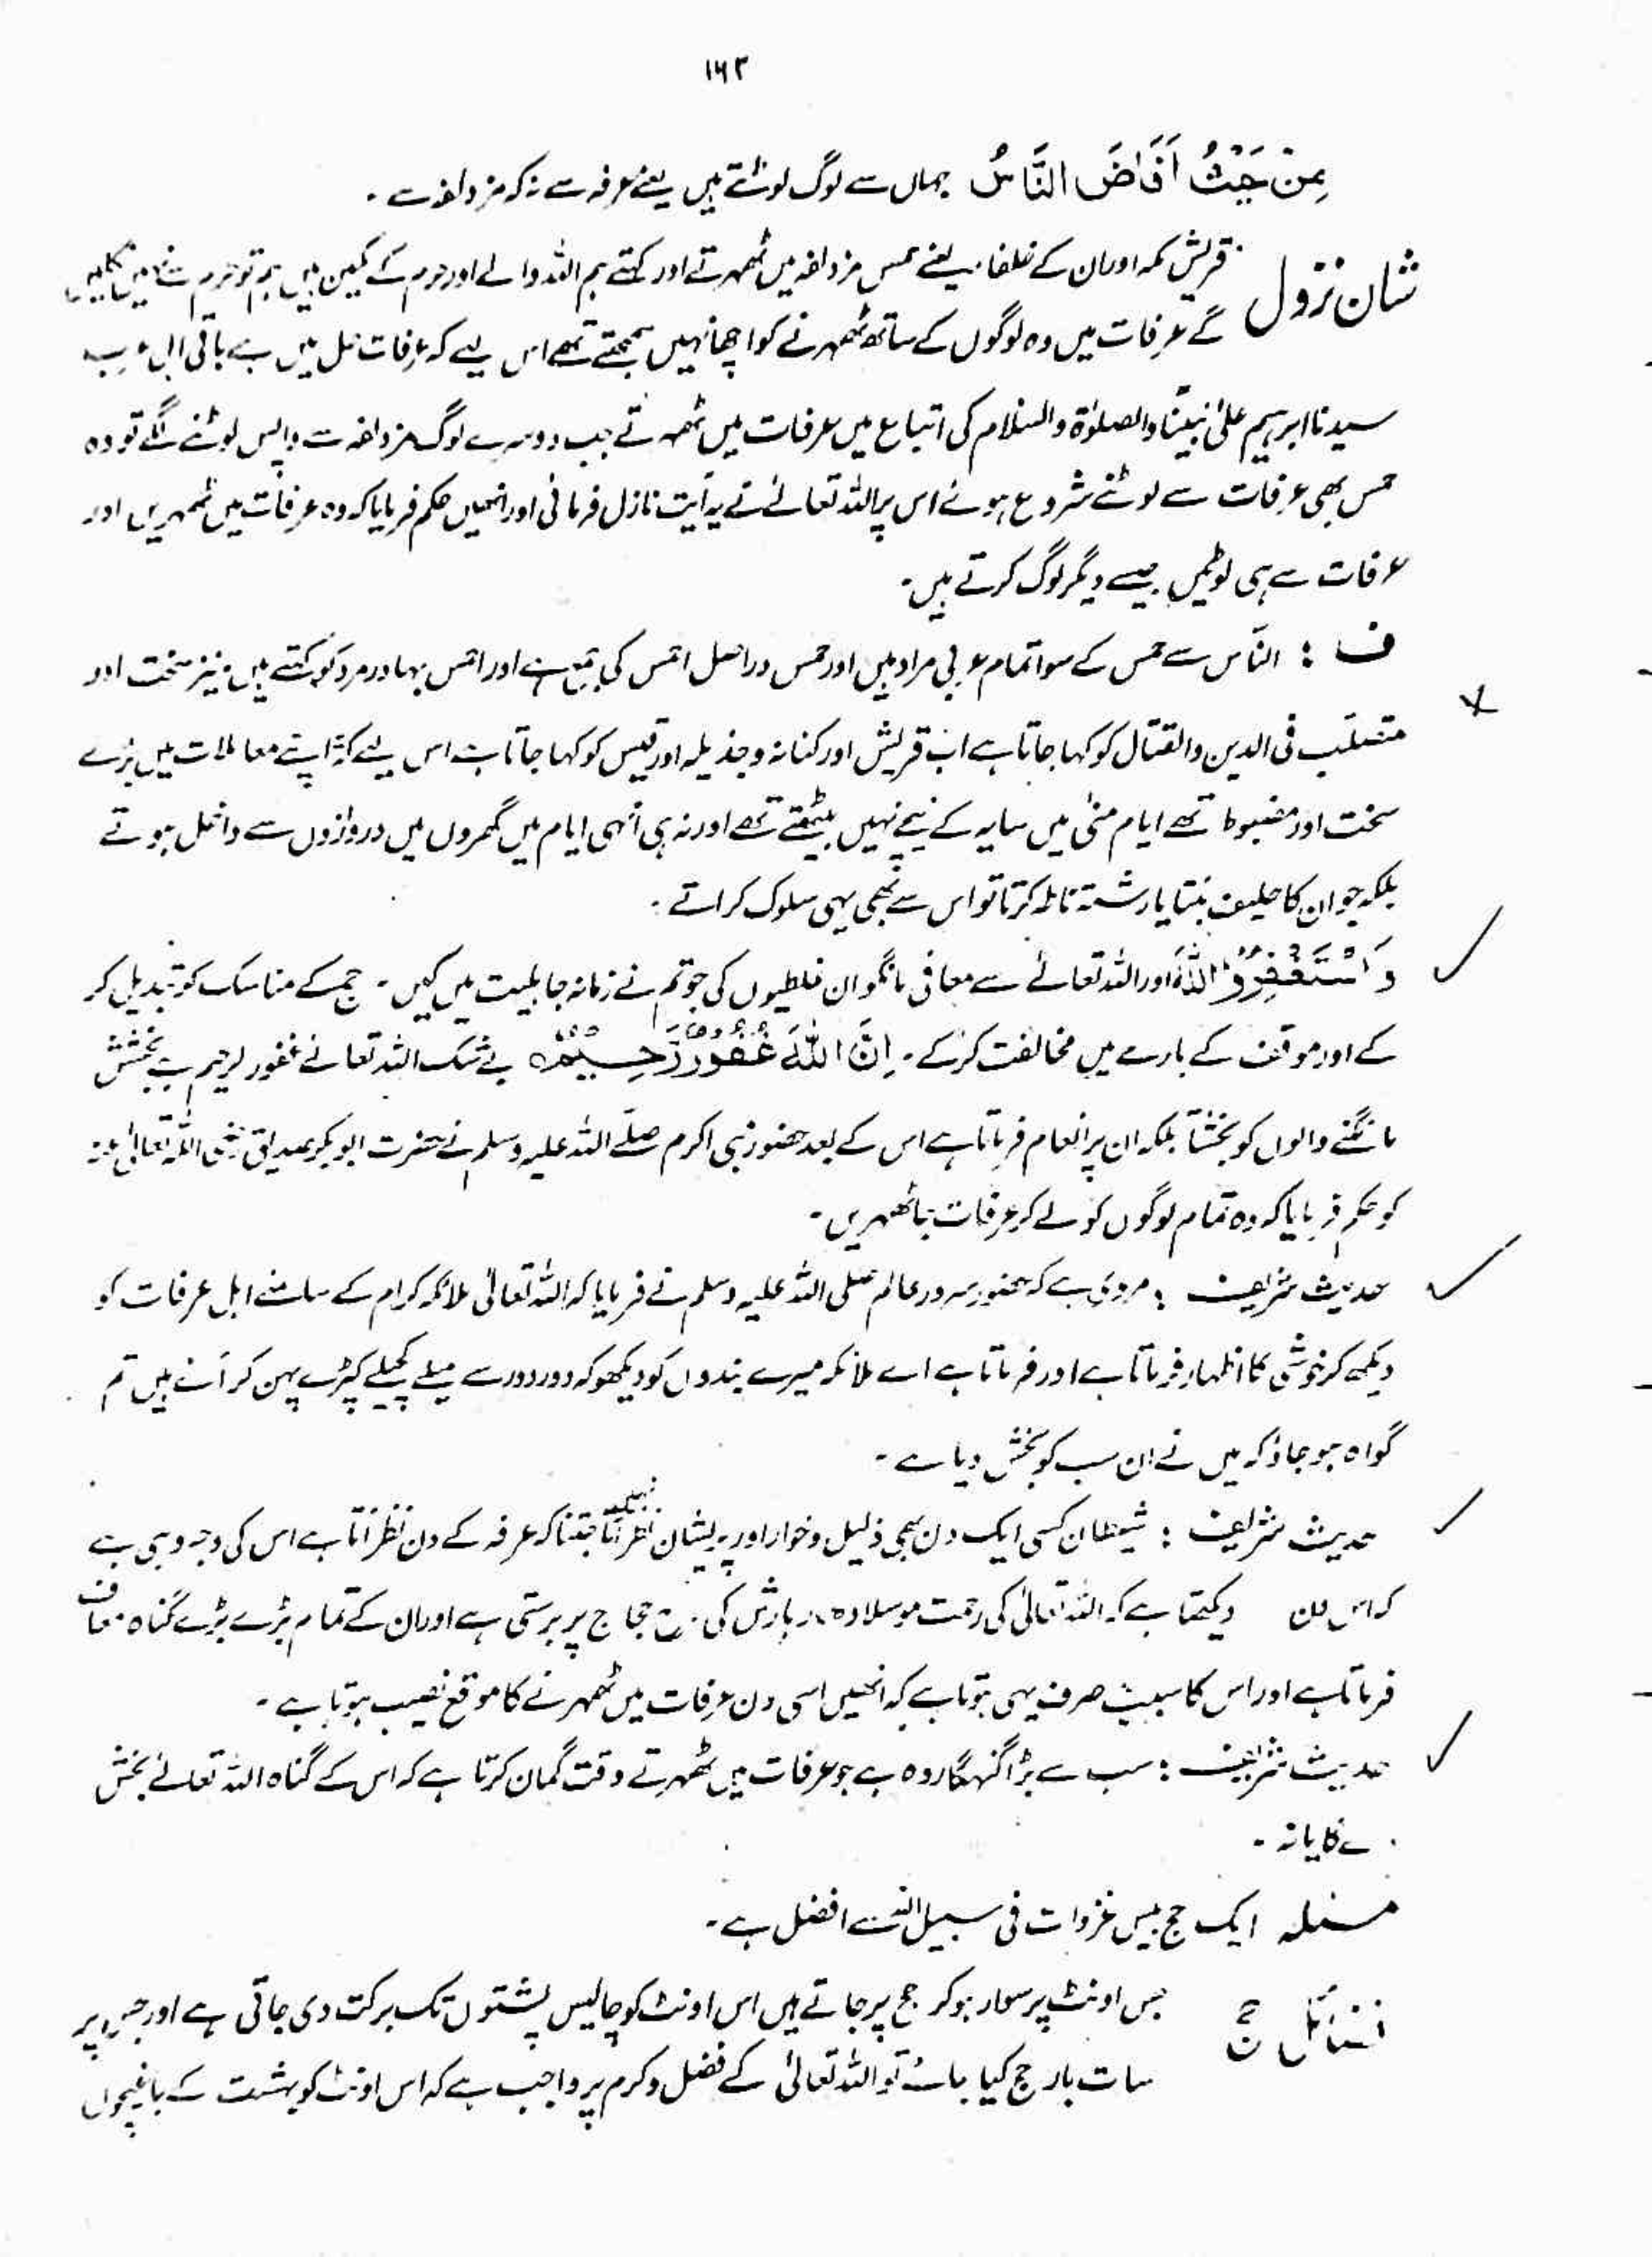 ۱۶۲
مِنْ حَيْثُ اَفَاضَ النَّاسُ جہاں سے لوگ لوٹتے ہیں یعنے عرفہ سے نہ کہ مزدلفہ سے ۔
شان نزول
قریش مکہ اور ان کے خلفاء یعنے حمس مزدلفہ میں ٹھہرتے اور کہتے ہم اللہ والے اور حرم کے مکین ہیں ہم تو حرم سے نہیں نکلیں
گے عرفات میں وہ لوگوں کے ساتھ ٹھہرنے کو اچھا نہیں سمجھتے تھے اس لیے کہ عرفات حل میں ہے باقی اہل عرب
سیدنا ابراہیم علیٰ نبینا والصلوٰۃ والسلام کی اتباع میں عرفات میں ٹھہرتے جب دوسرے لوگ مزدلفہ سے واپس لوٹنے لگے تو وہ
حمس بھی عرفات سے لوٹنے شروع ہوئے اس پر اللہ تعالےٰ نے یہ آیت نازل فرمائی اور انھیں حکم فرمایا کہ وہ عرفات میں ٹھہریں اور
عرفات سے ہی لوٹیں جیسے دیگر لوگ کرتے ہیں۔
ف : الناس سے حمس کے سوا تمام عربی مراد ہیں اور حمس دراصل احمس کی جمع ہے اور احمس بہادر مرد کو کہتے ہیں نیز سخت اور
متصلب فی الدین والقتال کو کہا جاتا ہے اب قریش اور کنانہ و جذیلہ اور قیس کو کہا جاتا ہے اس لیے کہ یہ اپنے معاملات میں بڑے
سخت اور مضبوط تھے ایام منیٰ میں سایہ کے نیچے نہیں بیٹھتے تھے اور نہ ہی انہی ایام میں گھروں میں دروازوں سے داخل ہوتے
بلکہ جو ان کا حلیف بنتا یا رشتہ ناطہ کرتا تو اس سے بھی یہی سلوک کراتے ۔
وَاسْتَغْفِرُوا اللّٰهَ اور اللہ تعالےٰ سے معافی مانگو ان غلطیوں کی جو تم نے زمانہ جاہلیت میں کیں ۔ حج کے مناسک کو تبدیل کر
کے اور موقف کے بارے میں مخالفت کر کے ۔ اِنَّ اللّٰهَ غَفُوْرٌ رَّحِيْمٌ ہ بے شک اللہ تعالےٰ غفور لرحیم ہے بخشش
مانگنے والوں کو بخشتا بلکہ ان پر انعام فرماتا ہے اس کے بعد حضور نبی اکرم صلے اللہ علیہ وسلم نے حضرت ابو بکر صدیق رضی اللہ تعالیٰ عنہ
کو حکم فرمایا کہ وہ تمام لوگوں کو لے کر عرفات جا ٹھہریں ۔
حدیث شریف : مروی ہے کہ حضور سرور عالم صلی اللہ علیہ وسلم نے فرمایا کہ اللہ تعالیٰ ملائکہ کرام کے سامنے اہل عرفات کو
دیکھ کر خوشی کا اظہار فرماتا ہے اور فرماتا ہے اے ملائکہ میرے بندوں کو دیکھو کہ دور دور سے میلے کچیلے کپڑے پہن کر آئے ہیں تم
گواہ ہو جاؤ کہ میں نے ان سب کو بخش دیا ہے ۔
حدیث شریف : شیطان کسی ایک دن بھی ذلیل و خوار اور پریشان نظر نہیں آتا جتنا کہ عرفہ کے دن نظر آتا ہے اس کی وجہ وہی ہے
کہ اس دن دیکھتا ہے کہ اللہ تعالیٰ کی رحمت موسلا دھار بارش کی طرح حجاج پر برستی ہے اور ان کے تمام بڑے بڑے گناہ معاف
فرماتا ہے اور اس کا سبب صرف یہی ہوتا ہے کہ انھیں اسی دن عرفات میں ٹھہرنے کا موقع نصیب ہوتا ہے ۔
حدیث شریف : سب سے بڑا گنہگار وہ ہے جو عرفات میں ٹھہرتے وقت گمان کرتا ہے کہ اس کے گناہ اللہ تعالےٰ بخش
ے گا یا نہ ۔
مسئلہ ایک حج بیس غزوات فی سبیل اللہ سے افضل ہے ۔
فضائل حج
جس اونٹ پر سوار ہو کر حج پر جاتے ہیں اس اونٹ کو چالیس پشتوں تک برکت دی جاتی ہے اور جس پر
سات بار حج کیا جائے تو اللہ تعالیٰ کے فضل و کرم پر واجب ہے کہ اس اونٹ کو بہشت کے باغیچوں